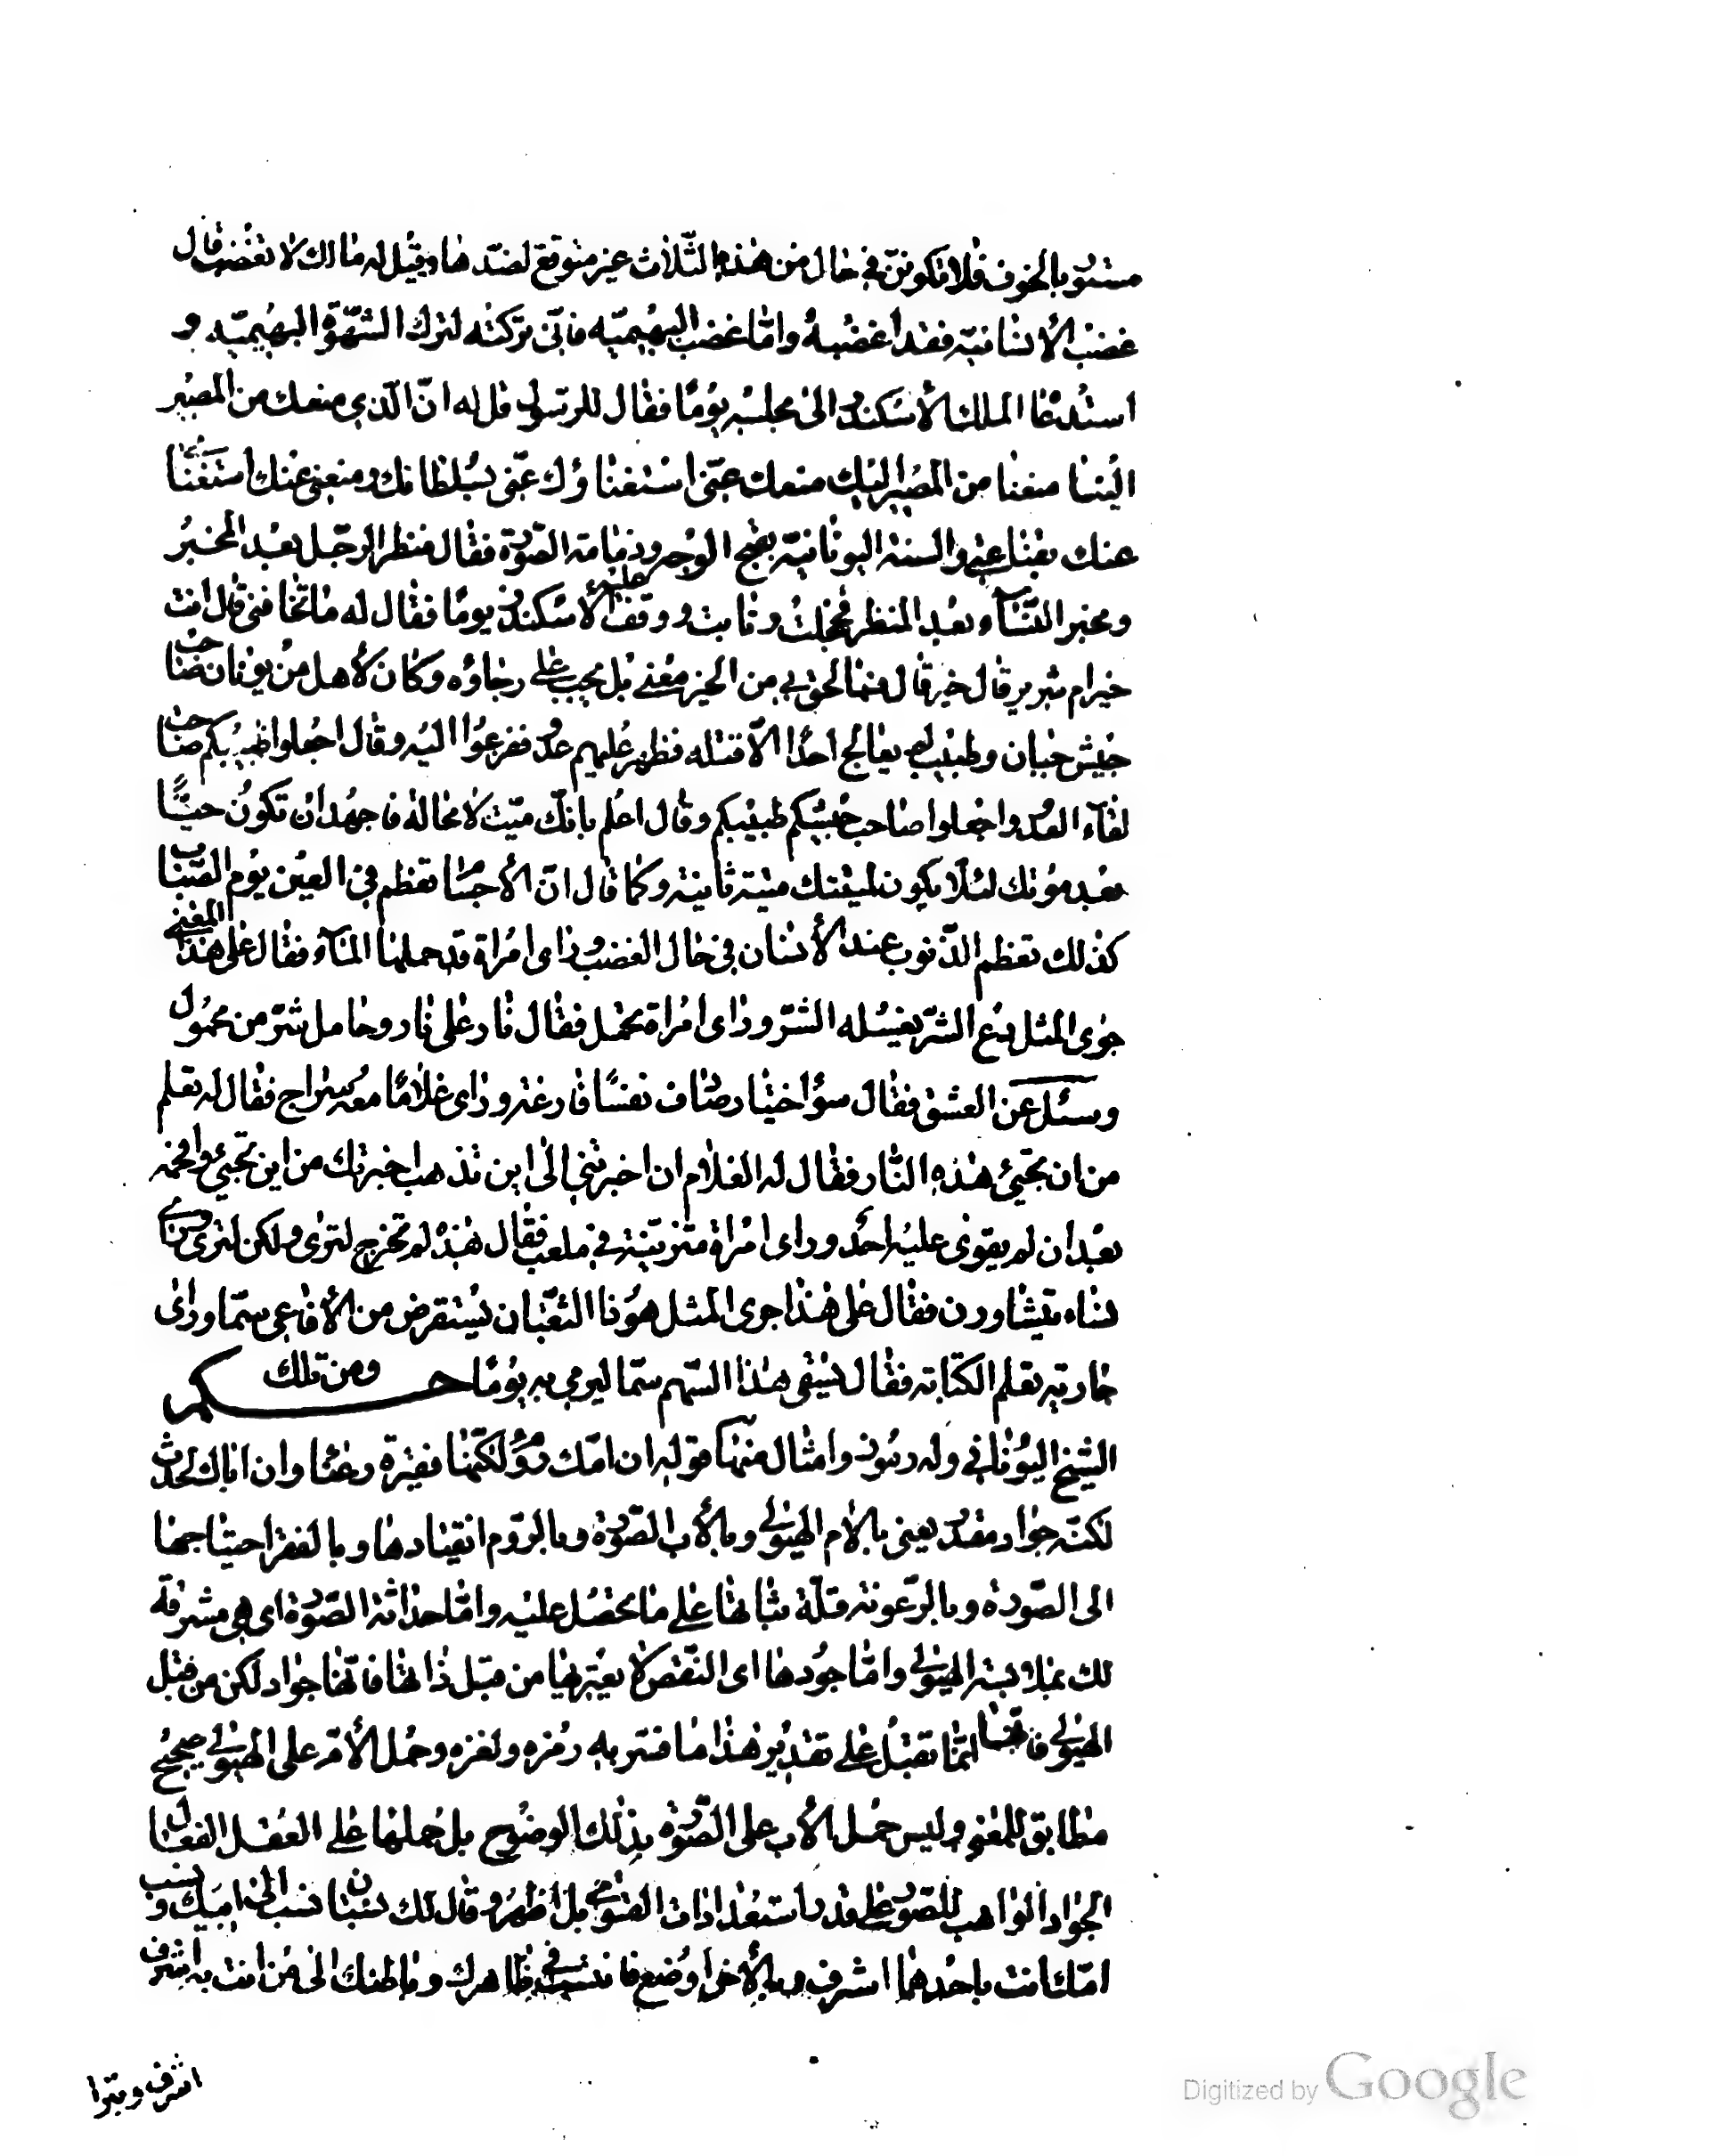 مشوبا بالخوف فلا تكونن في حال من هذه الثلاث غير متوقع لضدها وقيل له مالك لا تغضب قال
غضب الأنسانية فقد اغضبه واما غضب البهيمية فانى تركته لترك الشهوة البهيمية و
استدعا الملك الأسكندر الى مجلسه يومًا فقال للرسول قل له انّ الّذي منعك من المصير
الينا منعنا من المصير اليك منعك عنّى استغناؤك عنّى بسلطانك ومنعنى عنك استغنائى
عنك بقناعتى والسنة اليونانية بقبح الوجه وذمامة الصورة فقال منظر الرجل بعد المخبر
ومخبر النساء بعد المنظر فخجلت وتابت ووقف عليه الأسكندر يومًا فقال له ما تخافنى قال انت
خير ام شرير قال خير قال فما لخوفى من الخير معنى بل يجب على رجاؤه وكان لأهل من يونان صاحب
جيش جبان وطبيب لم يعالج احدًا الّا قتله فظهر عليهم عدو ففزعوا اليه وقال اجعلوا طبيبكم صاحب
لقاء العدو واجعلوا صاحب جيشكم طبيبكم وقال اعلم بانّك ميّت لا محالة فاجهد ان تكون حيًّا
بعد موتك لئلا يكون لميتتك ميتة ثانية وكما قال انّ الأجسام تعظم في العين يوم الضباب
كذلك تعظم الذنوب عند الأنسان في حال الغضب وراى امراة قد حملها الماء فقال على هذا المعنى
جرى المثل دع الشر يغسله الشر وراى امراة تحمل نارا فقال نار على نار وحامل شر من محمول
وسئل عن العشق فقال سوء اختيار صادف نفسًا فارغة وراى غلامًا معه سراج فقال له تعلم
من اين تجيئ هذه النار فقال له الغلام ان اخبرتنى الى اين تذهب اخبرتك من اين تجيئ وافحمه
بعد ان لم يقوى عليه احد وراى امراة متزينة في ملعب فقال هذه لم تخرج لترى ولكن لترى وراى
نساء يتشاورن فقال على هذا جرى المثل هو ذا الثعبان يستقرض من الأفاعى سمّا وراى
جارية تعلم الكتابة فقال يسقى هذا السّهم سمّا ليرمي به يومًا ومن تلك حكم
الشيخ اليوناني وله رموز وامثال منها قوله ان امّك رؤوم لكنّها فقيرة رعناء وان اباك لحدث
لكنّه جواد مقدر يعنى بالأم الهيولى وبالأب الصّورة وبالرّوم انقيادها وبالفقر احتياجها
الى الصّورة وبالرّعونة قلّة ثباتها على ما تحصل عليه وامّا حداثة الصّورة اى هي مشرقة
لك بملابسة الهيولى وامّا جودها اى النقص لا يعتريها من قبل ذاتها فانّها جواد لكن من قبل
الهيولى فانها انّما تقبل على تقدير هذا ما فسّر به رمزه ولغزه وحمل الأمّ على الهيولى صحيح
مطابق للمعنى وليس حمل الأب على الصّورة بذلك الوضوح بل حملها على العقل الفعال
الجواد الواهب للصّور على قدر استعدادات القوابل اظهر وقال لك نسبان نسب الى ابيك ونسب الى
امّك انت باحدهما اشرف وبالأخر اوضع فانتسب في ظاهرك وباطنك الى من انت به اشرف
اشرف وتبرا
Digitized by Google